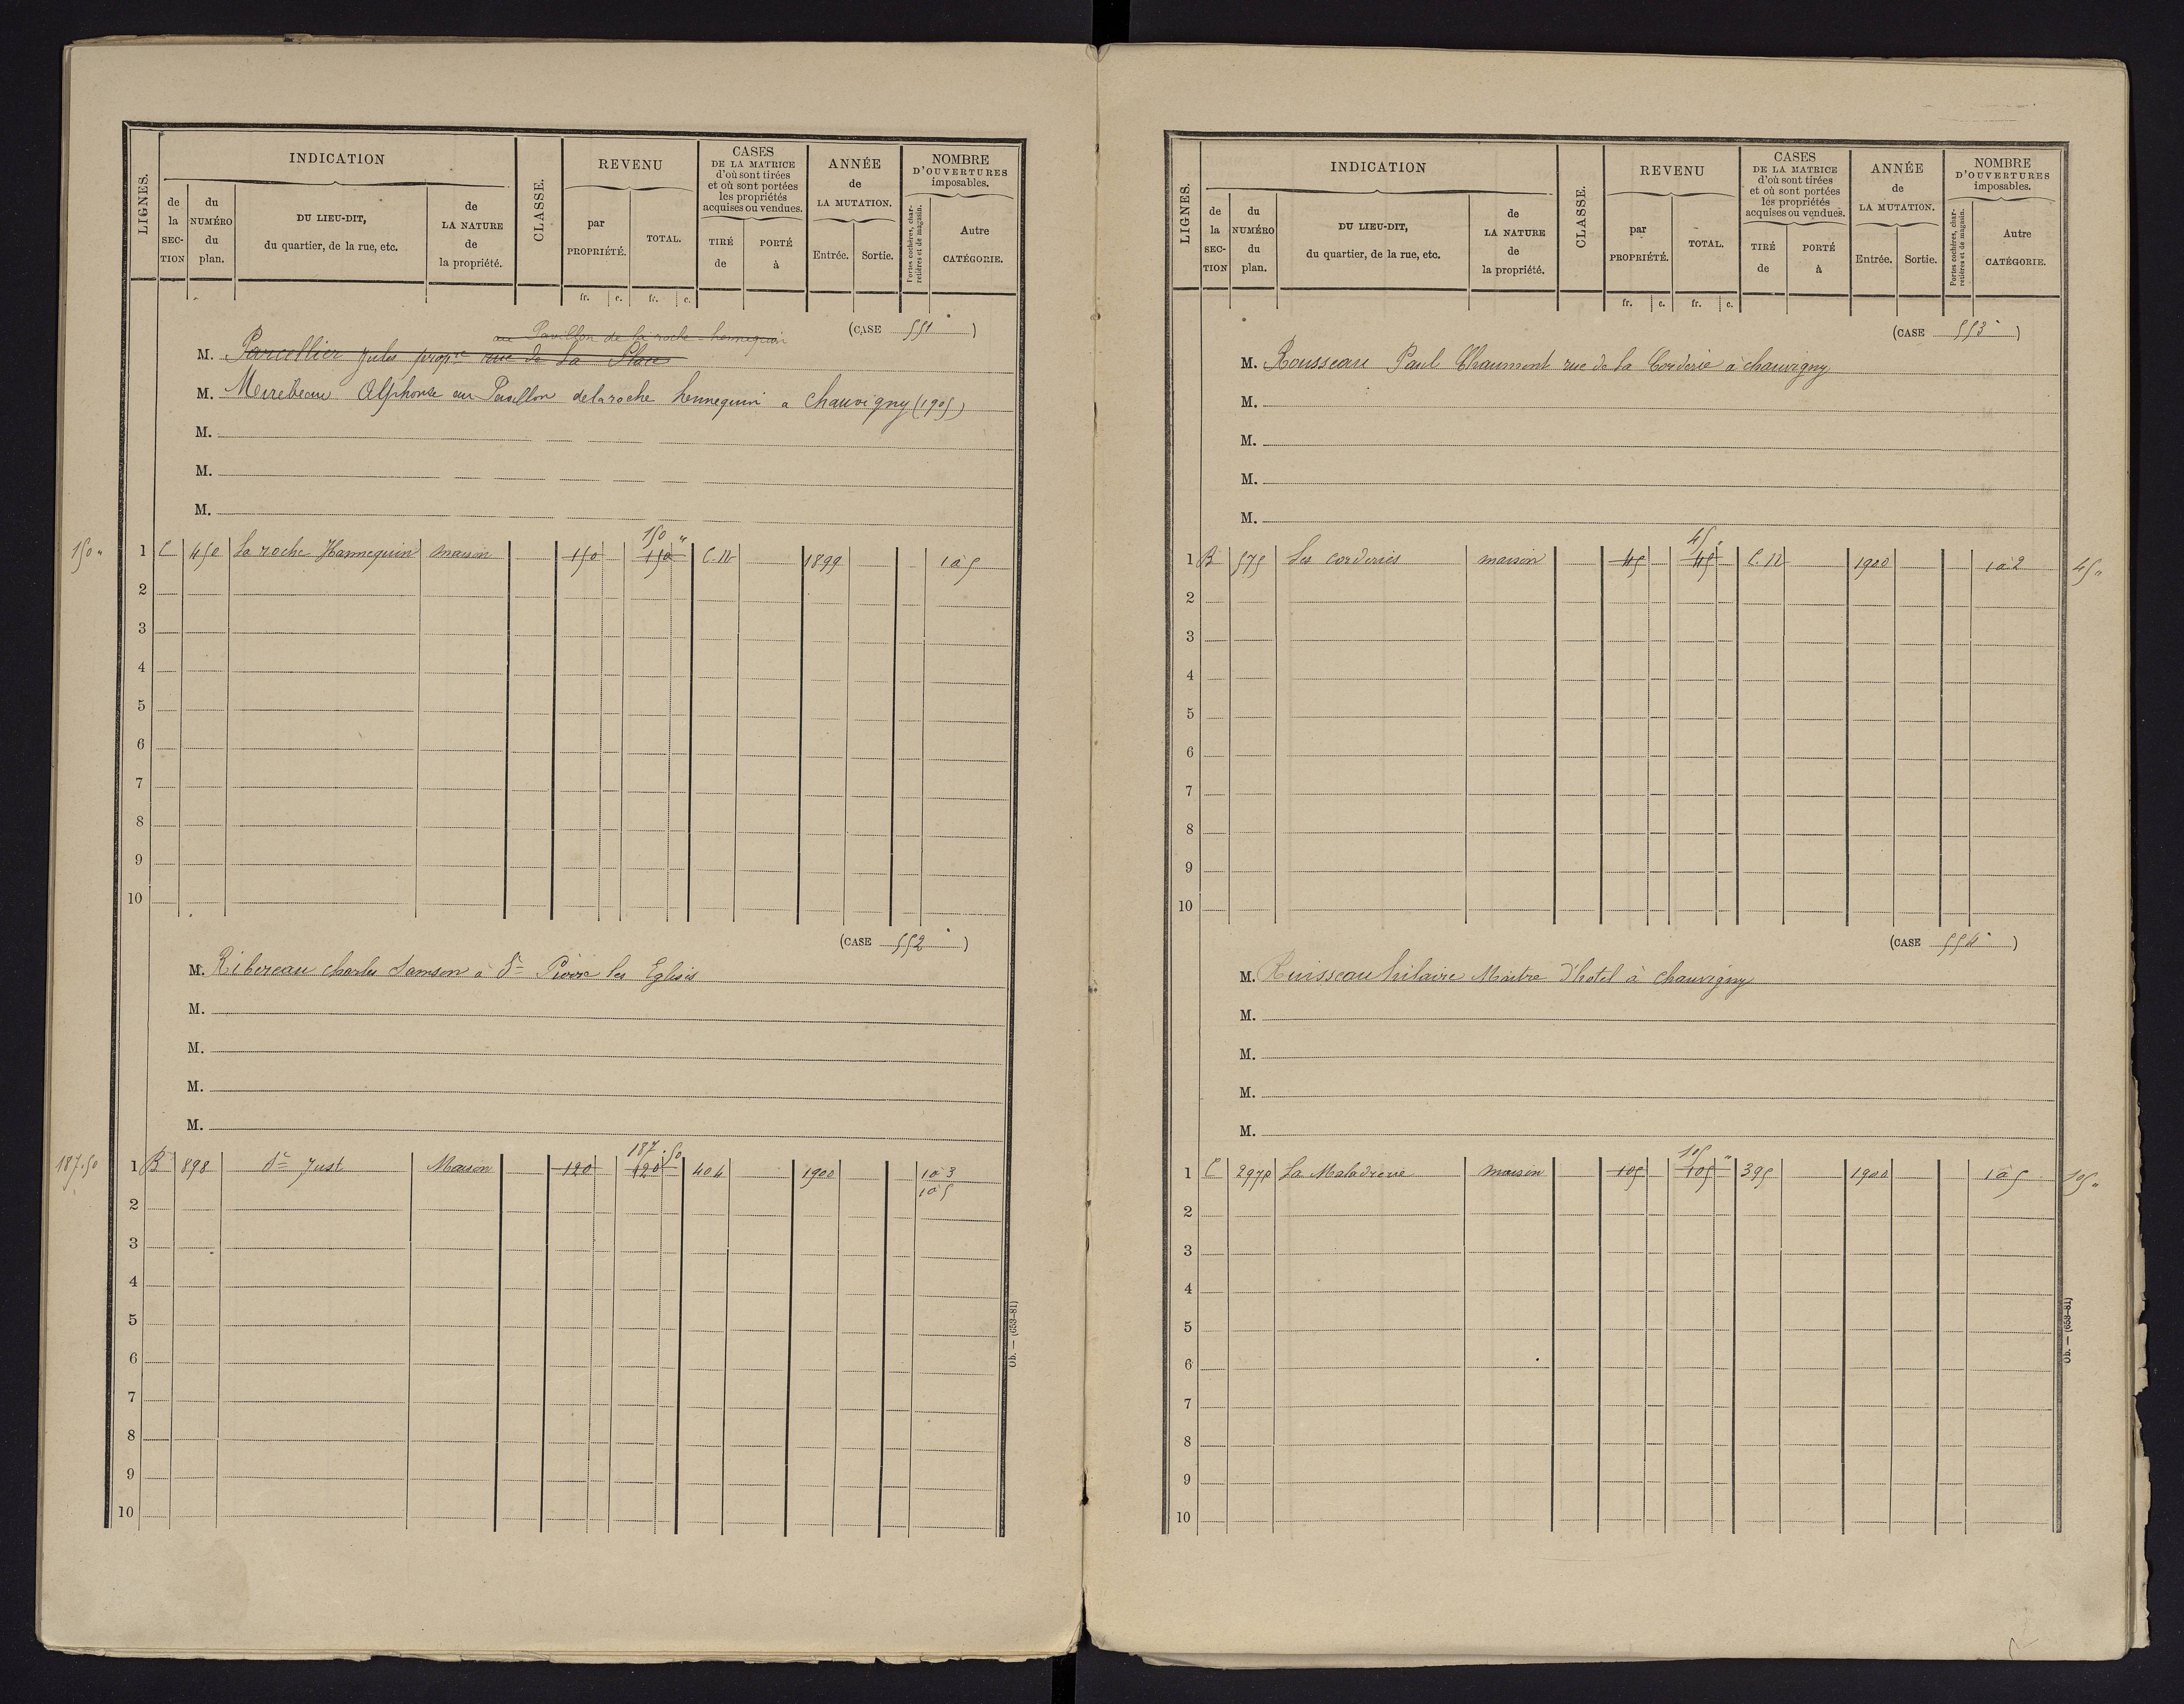 LIGNES.
INDICATION
de la SECTION
du NUMÉRO du plan.
DU LIEU-DIT, du quartier, de la rue, etc.
de LA NATURE de la propriété.
CLASSE.
REVENU
par PROPRIÉTÉ.
TOTAL.
fr. c. fr. c.
CASES DE LA MATRICE d'où sont tirées et où sont portées les propriétés acquises ou vendues.
TIRÉ de
PORTÉ à
ANNÉE de LA MUTATION.
Entrée. Sortie.
NOMBRE D'OUVERTURES imposables.
Portes cochères, charretières et de magasin.
Autre CATÉGORIE.
(CASE 551)
au Pavillon de la roche hennequin
M. Parcellier Jules propre rue de la Place
M. Merrebeau Alphonse au Pavillon de la roche hennequin a Chauvigny (1905)
M.
M.
M.
150 "
150 "
1 C 450 La roche Hannequin maison 150 150 C.N 1899 1 à 5
2
3
4
5
6
7
8
9
10
(CASE 552)
M. Ribereau charles Samson à St Pierre les Eglises
M.
M.
M.
M.
187.50
187.50
1 B 898 St Just Maison 120 120 404 1900 1 à 3
1 à 5
2
3
4
5
6
7
8
9
10
Ob. — (653-81)
LIGNES.
INDICATION
de la SECTION
du NUMÉRO du plan.
DU LIEU-DIT, du quartier, de la rue, etc.
de LA NATURE de la propriété.
CLASSE.
REVENU
par PROPRIÉTÉ.
TOTAL.
fr. c. fr. c.
CASES DE LA MATRICE d'où sont tirées et où sont portées les propriétés acquises ou vendues.
TIRÉ de
PORTÉ à
ANNÉE de LA MUTATION.
Entrée. Sortie.
NOMBRE D'OUVERTURES imposables.
Portes cochères, charretières et de magasin.
Autre CATÉGORIE.
(CASE 553)
M. Rousseau Paul Chaumont rue de la Corderie à chauvigny
M.
M.
M.
M.
45 "
1 B 575 Les corderies maison 45 45 C.N 1900 1 à 2 45 "
2
3
4
5
6
7
8
9
10
(CASE 554)
M. Ruisseau hilaire Maitre d'hotel à chauvigny
M.
M.
M.
M.
105 "
1 C 2970 La Maladrerie maison 105 105 395 1900 1 à 5 105 "
2
3
4
5
6
7
8
9
10
Ob. — (653-81)